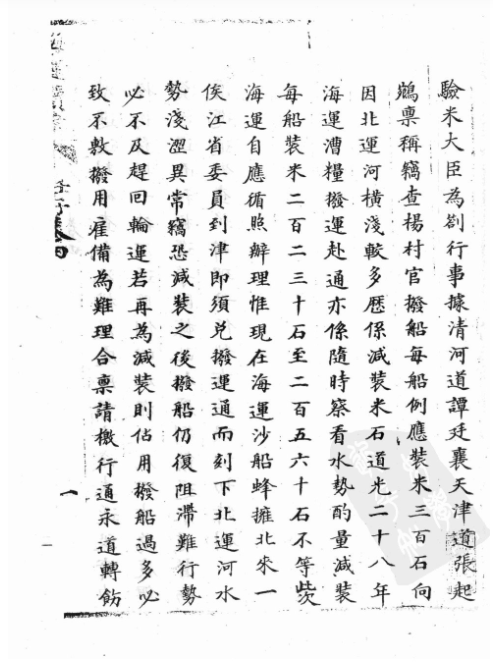 驗米大臣為劄行事據清河道譚廷襄天津道張起
鵷稟稱竊查楊村官撥船每船例應裝米三百石向
因北運河橫淺較多歷係減裝米石道光二十八年
海運漕糧撥運赴通亦係隨時察看水勢酌量減裝
每船裝米二百二三十石至二百五六十石不等此次
海運自應循照辦理惟現在海運沙船蜂擁北來一
俟江省委員到津即須兌撥運通而刻下北運河水
勢淺澀異常竊恐減裝之後撥船仍復阻滯難行勢
必不及趕回輪運若再為減裝則佔用撥船過多必
致不敷撥用雇備為難理合稟請檄行通永道轉飭
壬子卷四
一